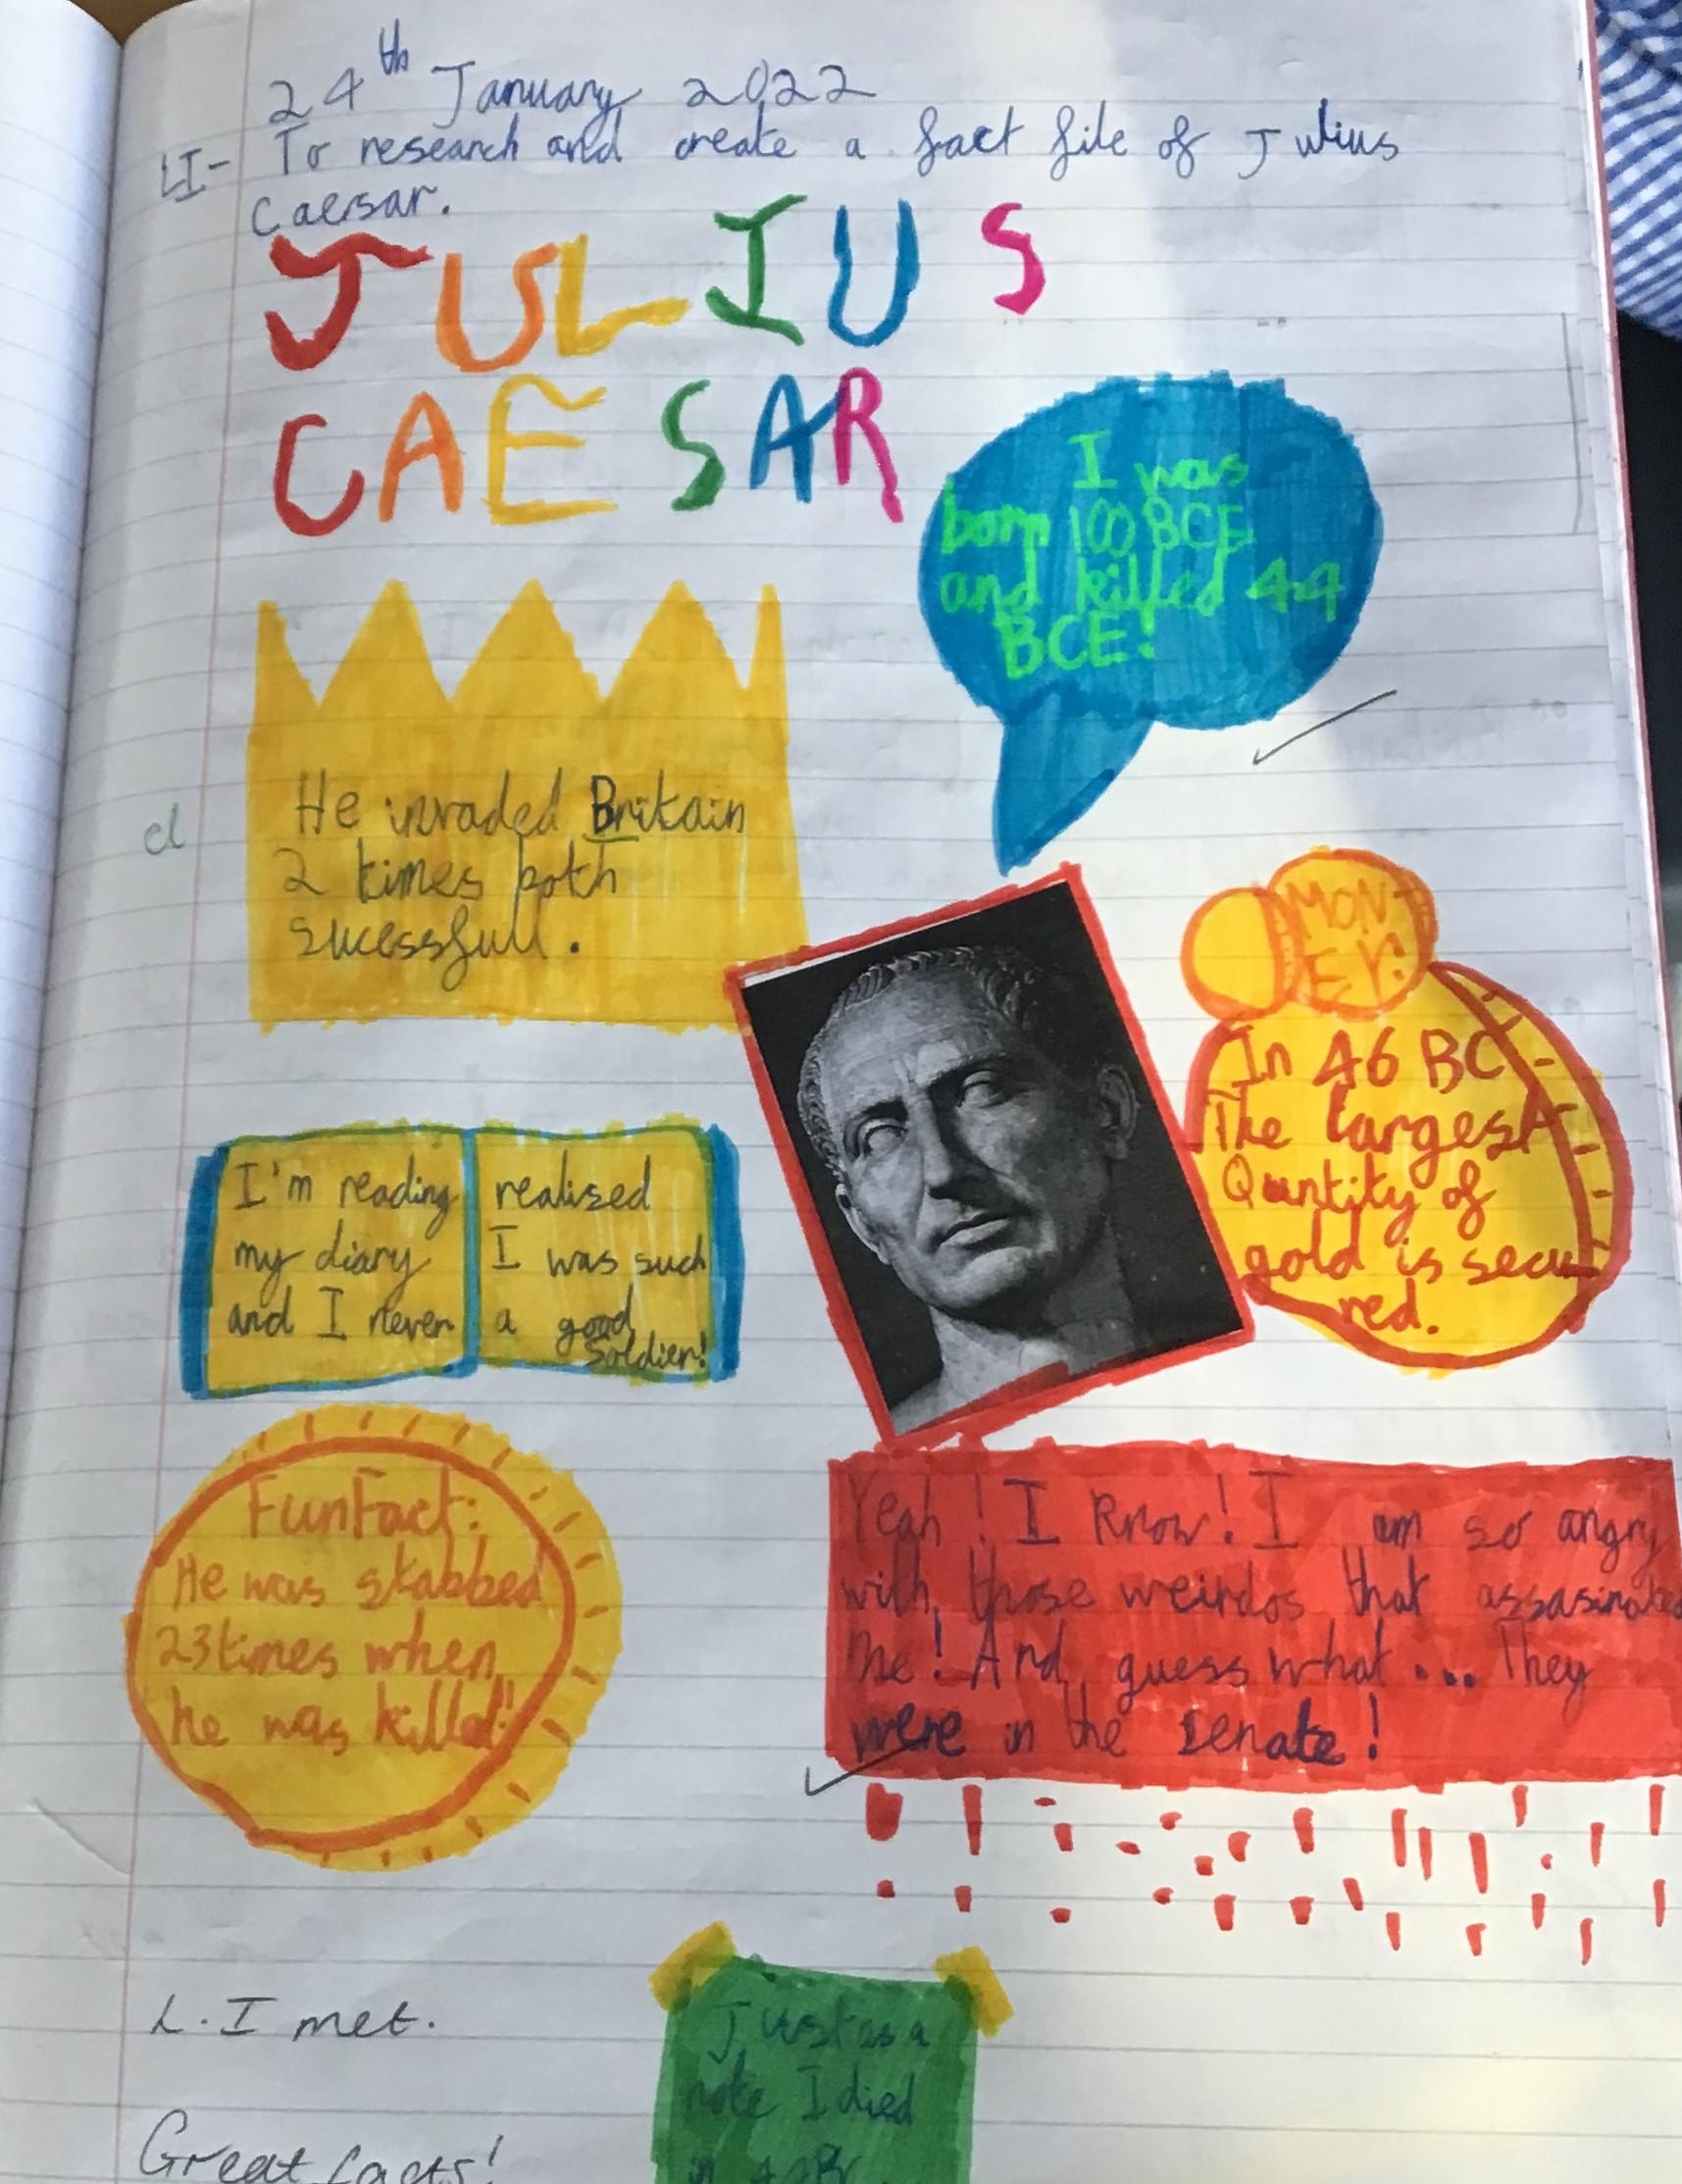 24th January 2022
LI- To research and create a fact file of Julius
Caesar.
JULIUS
CAESAR
I was
born 100 BCE
and killed 44
BCE!
cl
He invaded Britain
2 times both
sucessfull.
MON
EY:
In 46 BC
The largest
Quntity of
gold is secu
red.
I'm reading
my diary
and I never
realised
I was such
a good
soldier!
FunFact:
He was stabbed
23 times when
he was killed!
Yeah! I know! I am so angry
with those weirdos that assasinated
me! And guess what... They
were in the senate!
L.I met.
Great facts!
Just as a
note I died
in 44BC.